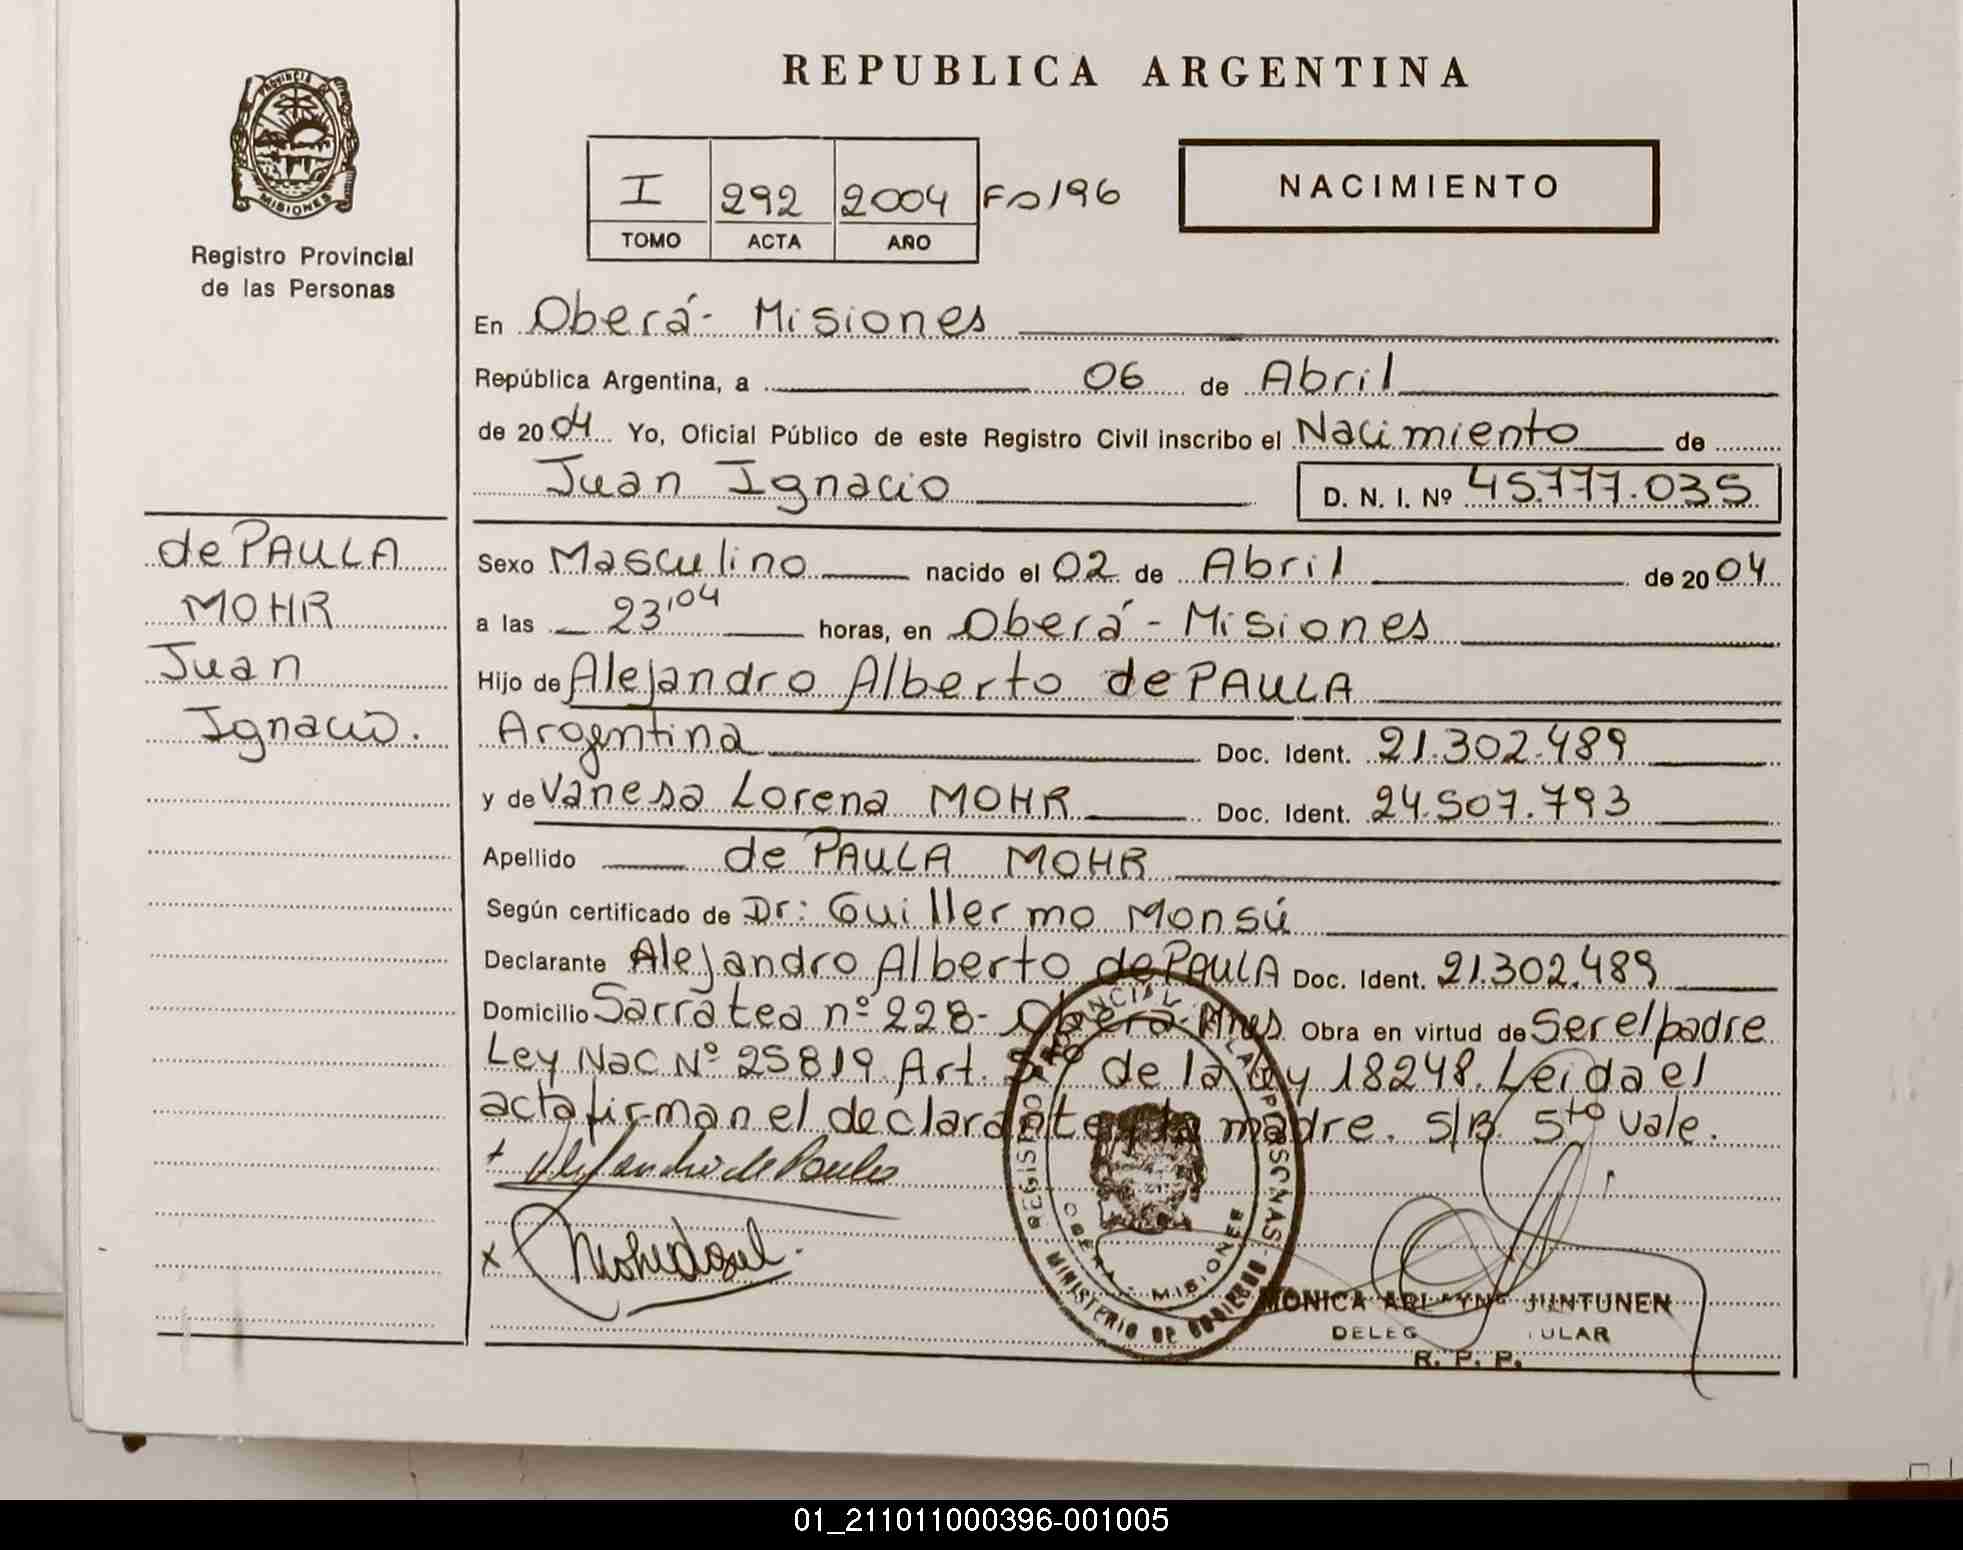 REPUBLICA ARGENTINA
PROVINCIA DE
MISIONES
Registro Provincial
de las Personas
I 292 2004 Fo 196
TOMO ACTA AÑO
NACIMIENTO
En Oberá - Misiones
República Argentina, a 06 de Abril
de 2004 Yo, Oficial Público de este Registro Civil inscribo el Nacimiento de
Juan Ignacio D. N. I. Nº 45.777.035
de PAULA
MOHR
Juan
Ignacio.
Sexo Masculino nacido el 02 de Abril de 2004
a las 23,04 horas, en Oberá - Misiones
Hijo de Alejandro Alberto de PAULA
Argentina Doc. Ident. 21.302.489
y de Vanesa Lorena MOHR Doc. Ident. 24.507.793
Apellido de PAULA MOHR
Según certificado de Dr: Guillermo Monsú
Declarante Alejandro Alberto de PAULA Doc. Ident. 21.302.489
Domicilio Sarratea nº 228 - Oberá - Mnes Obra en virtud de Ser el padre
Ley Nac Nº 25819 Art. 5to de la ley 18248. Leida el
acta firman el declarante y la madre. S/B. 5to vale.
REGISTRO PROVINCIAL DE LAS PERSONAS
OBERA - MISIONES
MINISTERIO DE GOBIERNO
MONICA JUNTUNEN
R. P. P.
01_211011000396-001005